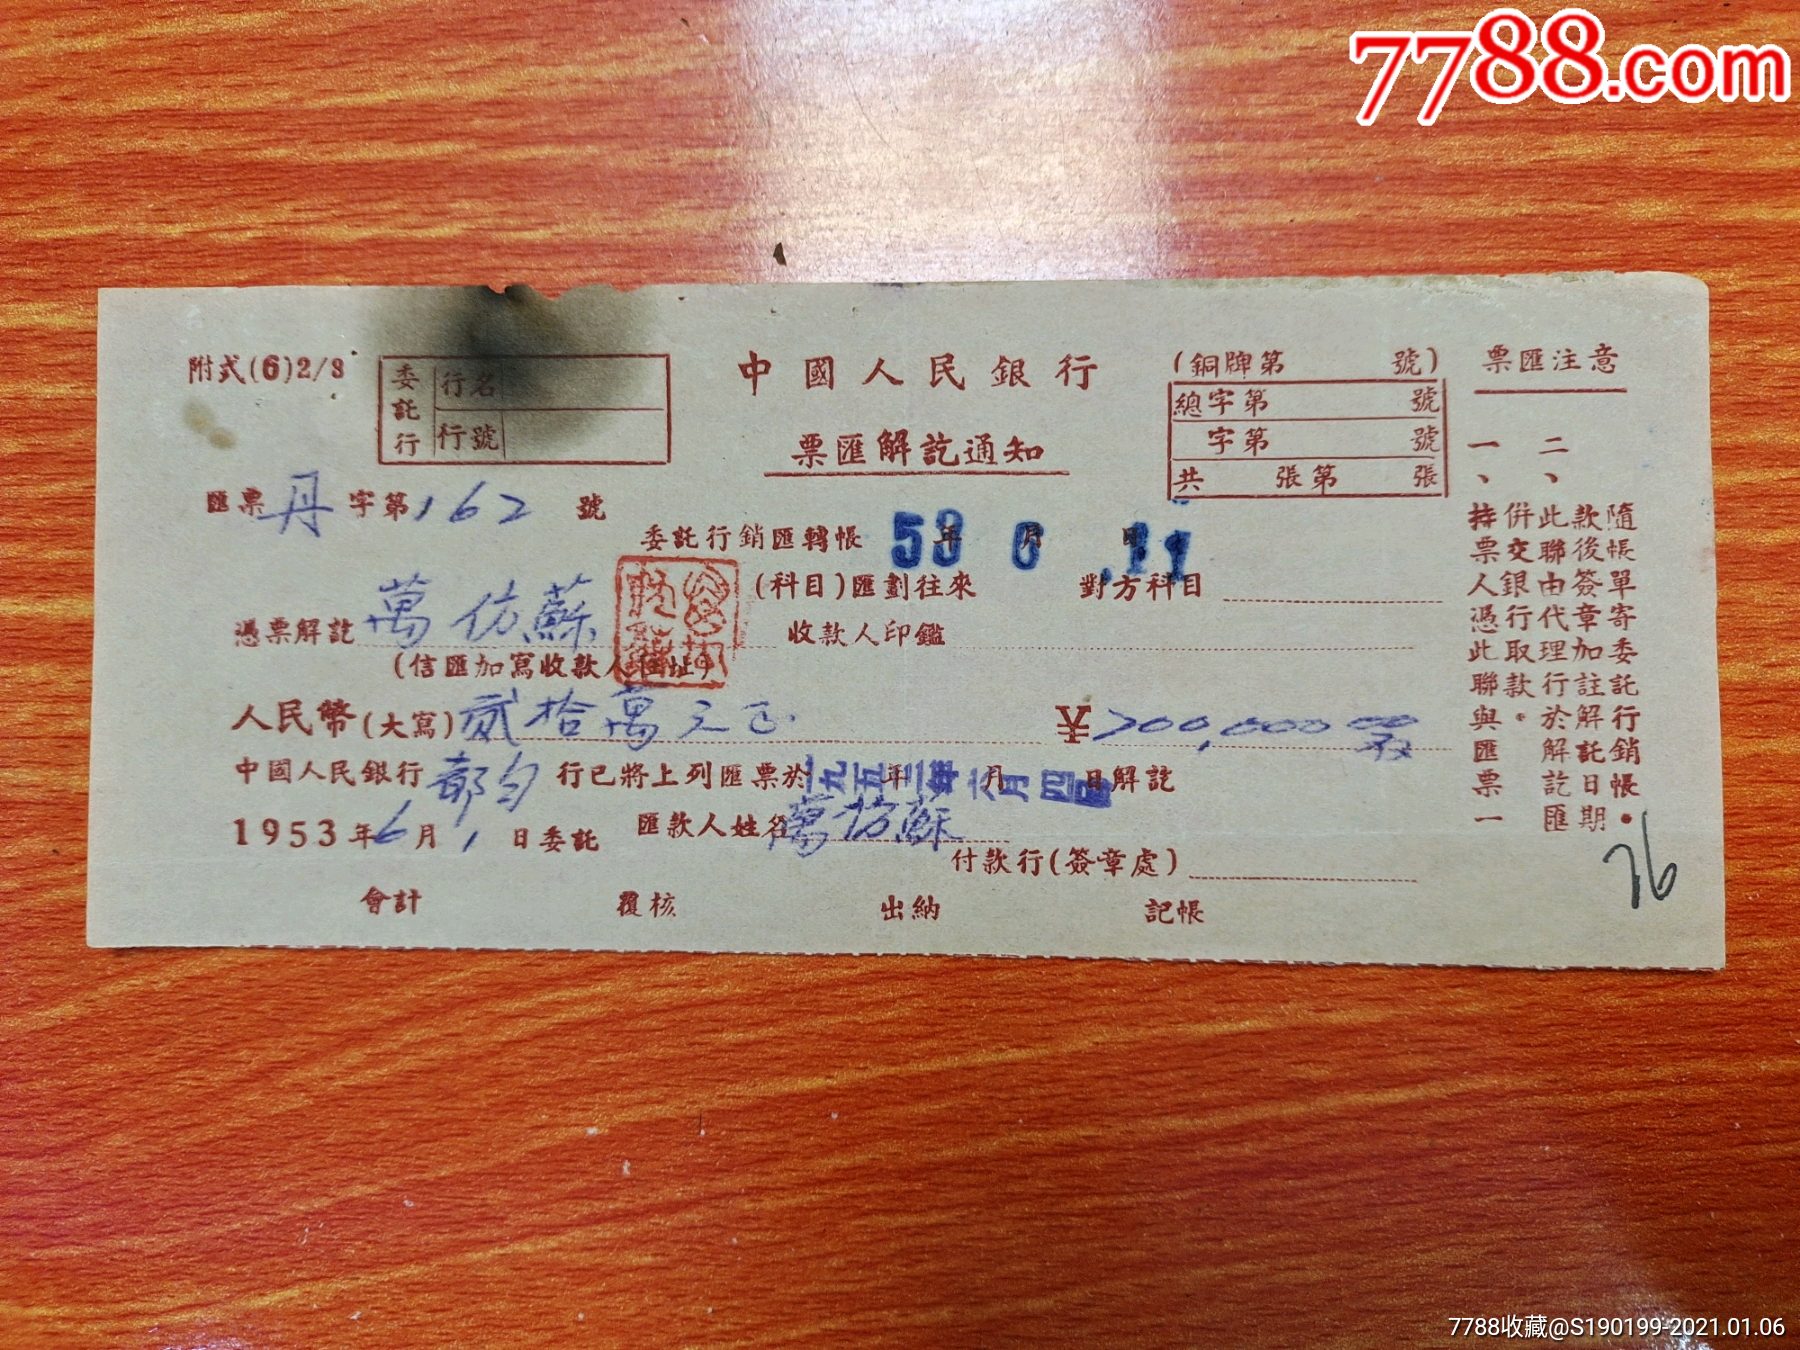 7788.com
附式(6)2/3
委託行
行名
行號
中國人民銀行
票匯解訖通知
(銅牌第 號)
總字第 號
字第 號
共 張第 張
票匯注意
一、持票人憑此聯與匯票一併交銀行取款。
二、此聯由代理行於解訖匯款後簽章加註解託日期隨帳單寄委託行銷帳。
匯票丹字第162號
委託行銷匯轉帳 53年6月11日
(科目)匯劃往來 對方科目
憑票解訖 萬仿蘇
收款人印鑑
(信匯加寫收款人住址)
人民幣(大寫)貳拾萬元正 ¥200,000 00
中國人民銀行都匀行已將上列匯票於一九五三年六月四日解訖
1953年6月1日委託 匯款人姓名萬仿蘇
付款行(簽章處)
會計 覆核 出納 記帳
76
7788收藏@S190199-2021.01.06